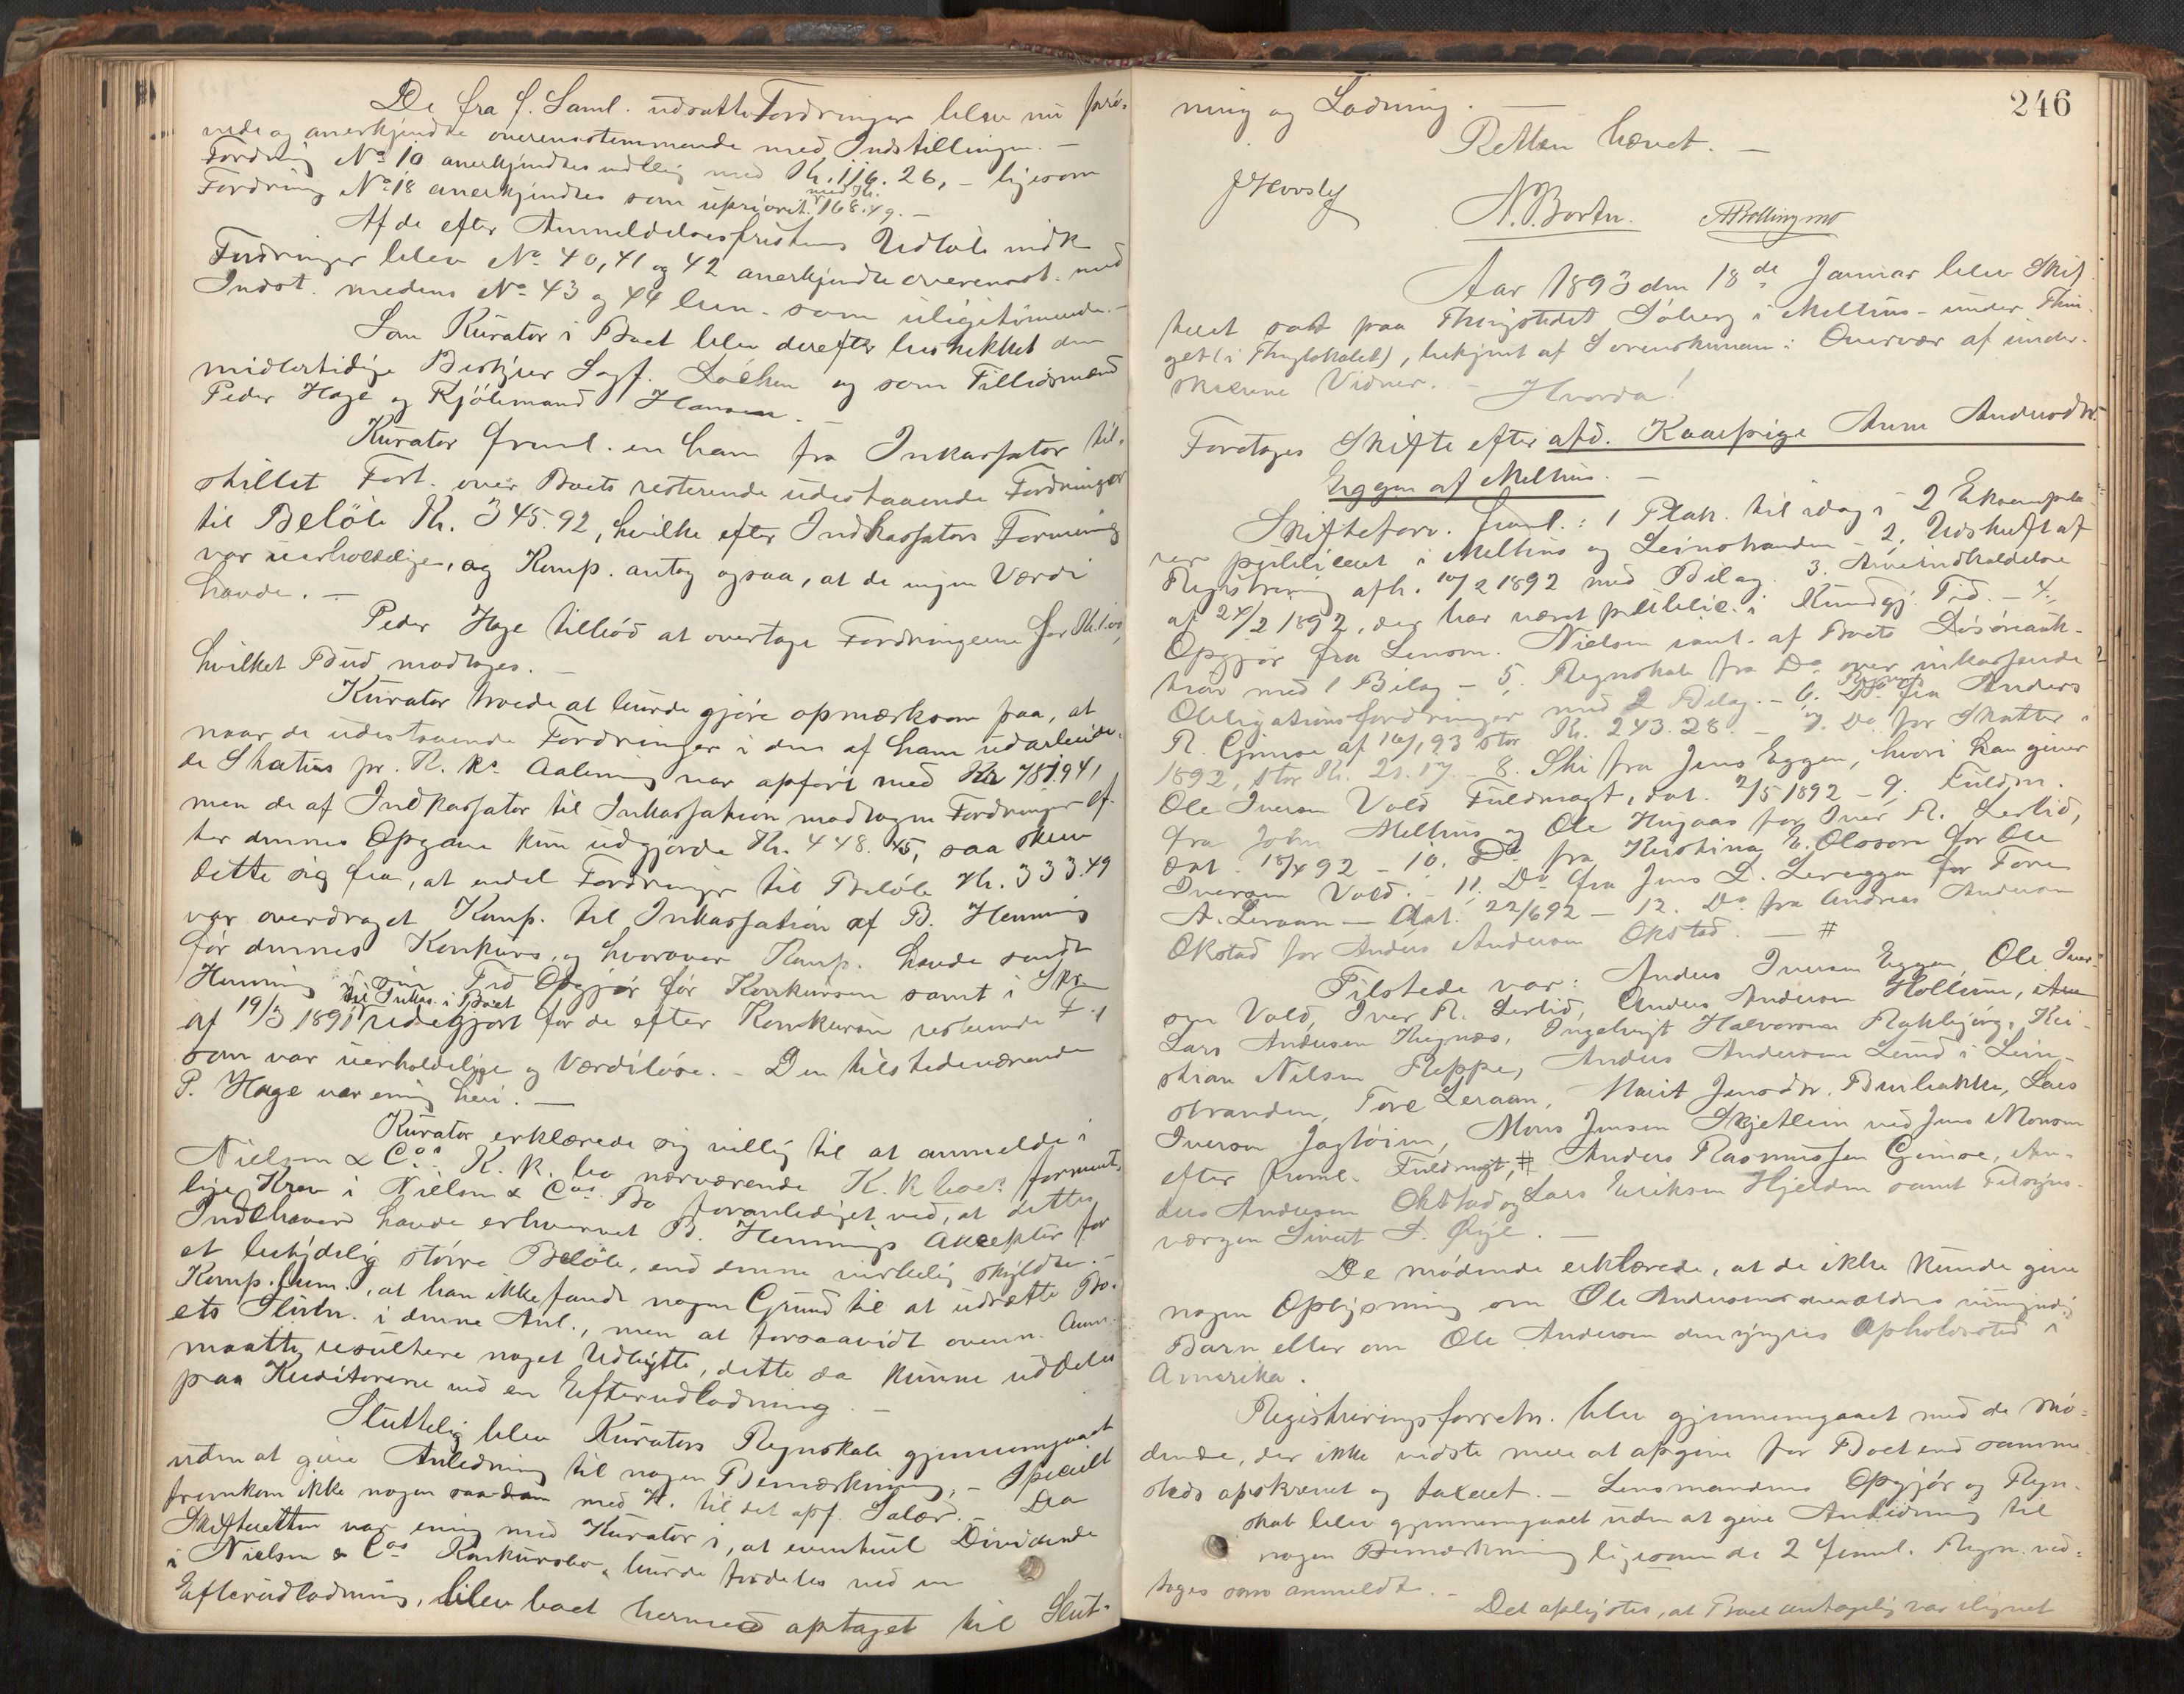 De fra f. Saml. udsatte Fordringer blev nu prø-
vede og anerkjendte overensstemmende med Indstillingen. –
Fordring No 10 anerkjendtes endelig med Kr. 116.26, – ligesom
Fordring No 18 anerkjendtes som upriorit. med Kr. 168.49. –
Af de efter Anmeldelsesfristens Udløb indk.
Fordringer blev No 40, 41 og 42 anerkjendte overensst. med
Indst. medens No 43 og 44 som uligitimerede. –
Som Kurator i Boet blev derefter beskikket den
midlertidige Bestyrer Sagf. Løchen og som Tillidsmænd
Peder Hage og Kjøbmand Hansen.
Kurator freml. en ham fra Inkassator til-
stillet Fort. over Boets resterende udestaaende Fordringer
til Beløb Kr. 345.92, hvilke efter Indkassators Formening
var uerholdelige, og Komp. antog ogsaa, at de ingen Værdi
havde. –
Peder Hage tilbød at overtage Fordringerne for Kr. 1.00,
hvilket Bud modtoges. –
Kurator troede at burde gjøre opmærksom paa, at
naar de udestaaende Fordringer i den af ham udarbeide-
de Status pr. K. Ks Aabning var opført med Kr 781.941
men de af Indkassator til Inkassation modtagne Fordringer ef-
ter dennes Opgave kun udgjorde Kr. 448.45, saa skrev
dette sig fra, at endel Fordringer til Beløb Kr. 333.49
var overdraget Komp. til Inkassation af B. Henning
før dennes Konkurs, og hvorover Komp. havde sendt
Henning i sin Tid Opgjør før Konkursen samt i Skr.
af 19/3 1891 til Inkas. i Boet redegjort for de efter Konkursen resterende F.
som var uerholdelige og Værdiløse. – Den tilstedeværende
P. Hage var enig heri. –
Kurator erklærede sig villig til at anmelde i
Nielsen & Cos K. K. bo nærværende K. K. boes forment-
lige Krav i Nielsen & Cos Bo foranlediget ved, at dettes
Indehaver havde erhvervet B. Hennings Accepter for
et betydelig større Beløb, end denne virkelig skyldte. –
Komp. , at han ikke fandt nogen Grund til at udsætte Bo-
ets Slutn. i denne Anl., men at forsaavidt ovenn. Anm.
maatte resultere noget Udbytte, dette da kunne uddeles
paa Kreditorerne ved en Efterudlodning. –
Sluttelig blev Kurators Regnskab gjennemgaaet
uden at give Anledning til nogen Bemærkning, – Specielt
fremkom ikke nogen saadan med H. til det opf. Salær. – Da
Skifteretten var enig med Kurator i, at eventuel Dividende
i Nielsen & Cos Konkursbo burde fordeles ved en
Efterudlodning, blev boet hermed optaget til Slut-
246
ning og Lodning. –
Retten hævet. –
N. Borten.
Aar 1893 den 18de Januar blev Skif-
teret sat paa Thingstedet Søberg i Melhus – under Thin-
get (i Thinglokalet), betjent af Sorenskriveren i Overvær af under-
skrevne Vidner. – Hvorda!
Foretoges Skifte efter afd. Kaarpige Anne Andersdtr.
Eggen af Melhus. –
Skifteforv. freml.: 1 Plak. til idag i 2 Eksempla-
rer publiceret i Melhus og Leinstranden – 2. Udskrift af
Registrering afh. 10/2 1892 med Bilag. 3. Arveindkaldelse
af 24/2 1892, der har været public. i Kundgj. Tid. – 4.
Opgjør fra Lensm. Nielsen samt. af Boets Løsøreauk-
tion med 1 Bilag – 5. Regnskab fra Do over inkasserede
Obligationsfordringer med 2 Bilag. – 6. Regning fra Anders
R. Gimse af 16/1 93 stor Kr. 243.28. – 7. Do for Skatter i
1892, stor Kr. 21.17. – 8. Skr. fra Jens Eggen, hvori han giver
Ole Iversen Vold Fuldmagt, dat. 2/5 1892 – 9. Fuldm.
fra John Melhus og Ole Hugaas for Iver R. Lerlid,
dat. 18/4 92 – 10. Do fra Kristina E. Olsson for Ole
Iversen Vold. – 11. Do fra Jens L. Lereggen for Tore
A. Leraan – dat. 22/6 92 – 12. Do fra Andreas Andersen
Okstad for Anders Andersen Okstad. – #
Tilstede var: Anders Iversen Eggen, Ole Iver-
sen Vold, Iver R. Lerlid, Anders Andersen Hollum,
Lars Andersen Hegnæs, Ingebrigt Halvorsen Rakbjørg, Kri-
stian Nilsen Reppe, Anders Andersen Lund i Lein-
stranden, Tore Leraan, Marit Jensdtr. Burbakke, Lars
Iversen Jagtøien, Mons Jensen Skjetlein ved Jens Monsen
efter freml. Fuldmagt, # Anders Rasmussen Gimse, An-
ders Andersen Okstad og Lars Eriksen Hjelden samt Tilsyns-
værgen Sivert S. Øye. –
De mødende erklærede, at de ikke kunde give
nogen Oplysning om Ole Andersens ældres umyndig
Barn eller om Ole Andersen den yngres Opholdssted i
Amerika.
Registreringsforretn. blev gjennemgaaet med de mø-
dende, der ikke vidste mere at opgive for Boet end samme-
steds opskrevet og taxeret. – Lensmandens Opgjør og Regn-
skab blev gjennemgaaet uden at give Anledning til
nogen Bemærkning ligesom de 2 freml. Regn. ved-
toges som anmeldt. –
Det oplystes, at Boet antagelig var ilignet